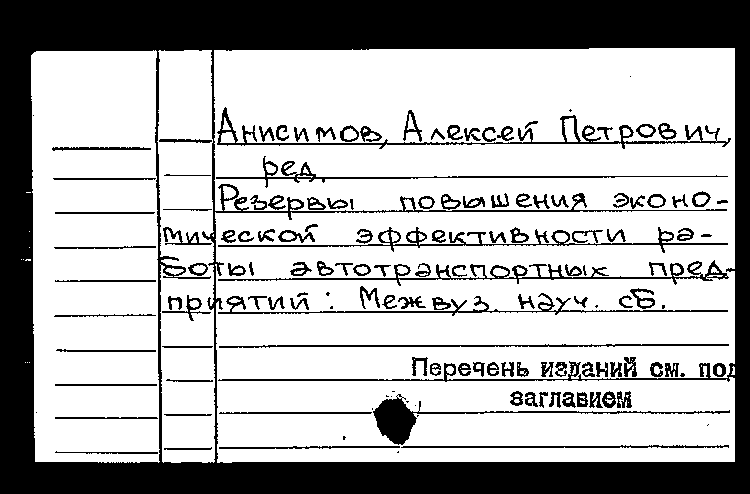 Анисимов, Алексей Петрович,
ред.
Резервы повышения эконо-
мической эффективности ра-
боты автотранспортных пред-
приятий : Межвуз. науч. сб.
Перечень изданий см. под
заглавием